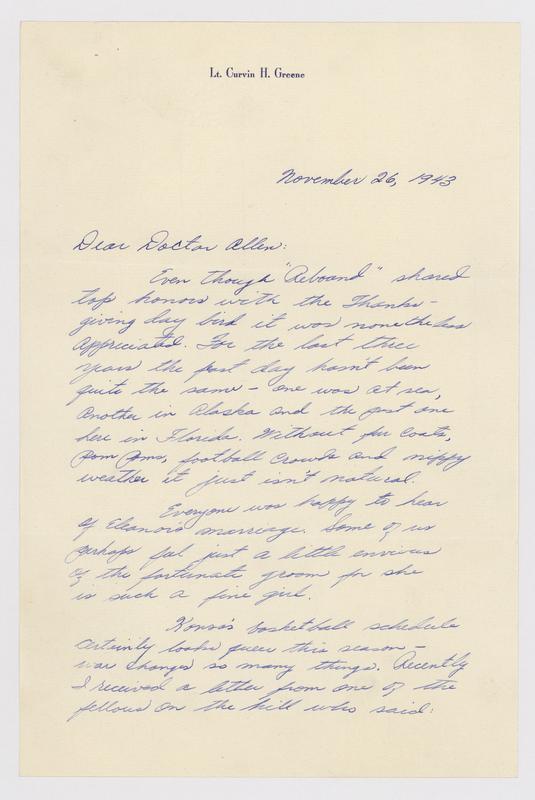 Lt. Curvin H. Greene
November 26, 1943
Dear Doctor Allen:
Even though "Rebound" shared
top honors with the Thanks-
giving day bird it was nonetheless
appreciated. For the last three
years the fast day hasn't been
quite the same - one was at sea,
another in Alaska and the past one
here in Florida. Without fur coats,
pom poms, football crowds and nippy
weather it just isn't natural.
Everyone was happy to hear
of Eleanor's marriage. Some of us
perhaps feel just a little envious
of the fortunate groom for she
is such a fine girl.
Kansas basketball schedule
certainly looks queer this season -
war changes so many things. Recently
I received a letter from one of the
fellows on the hill who said: